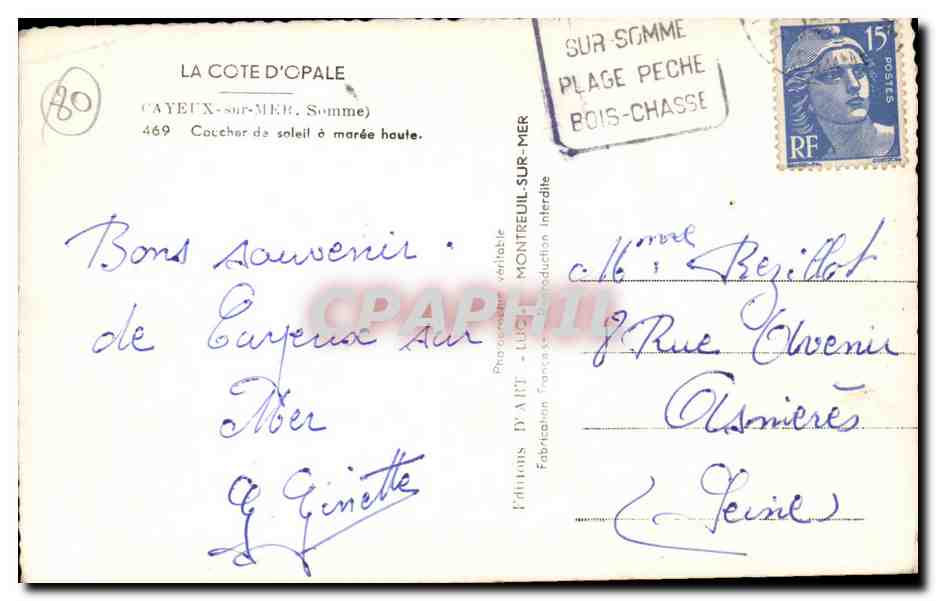 LA COTE D'OPALE
CAYEUX-sur-MER. Somme)
469 Coucher de soleil à marée haute.
80
SUR-SOMME
PLAGE PECHE
BOIS-CHASSE
15F
POSTES
RF
Bons souvenir
de Cayeux sur
Mer
G Ginette
Photographie véritable
Editions D'ART - MONTREUIL-SUR-MER
Fabrication Française - Reproduction Interdite
Mme Rezillot
8 Rue Avenir
Asnières
(Seine)
CPAPHIL